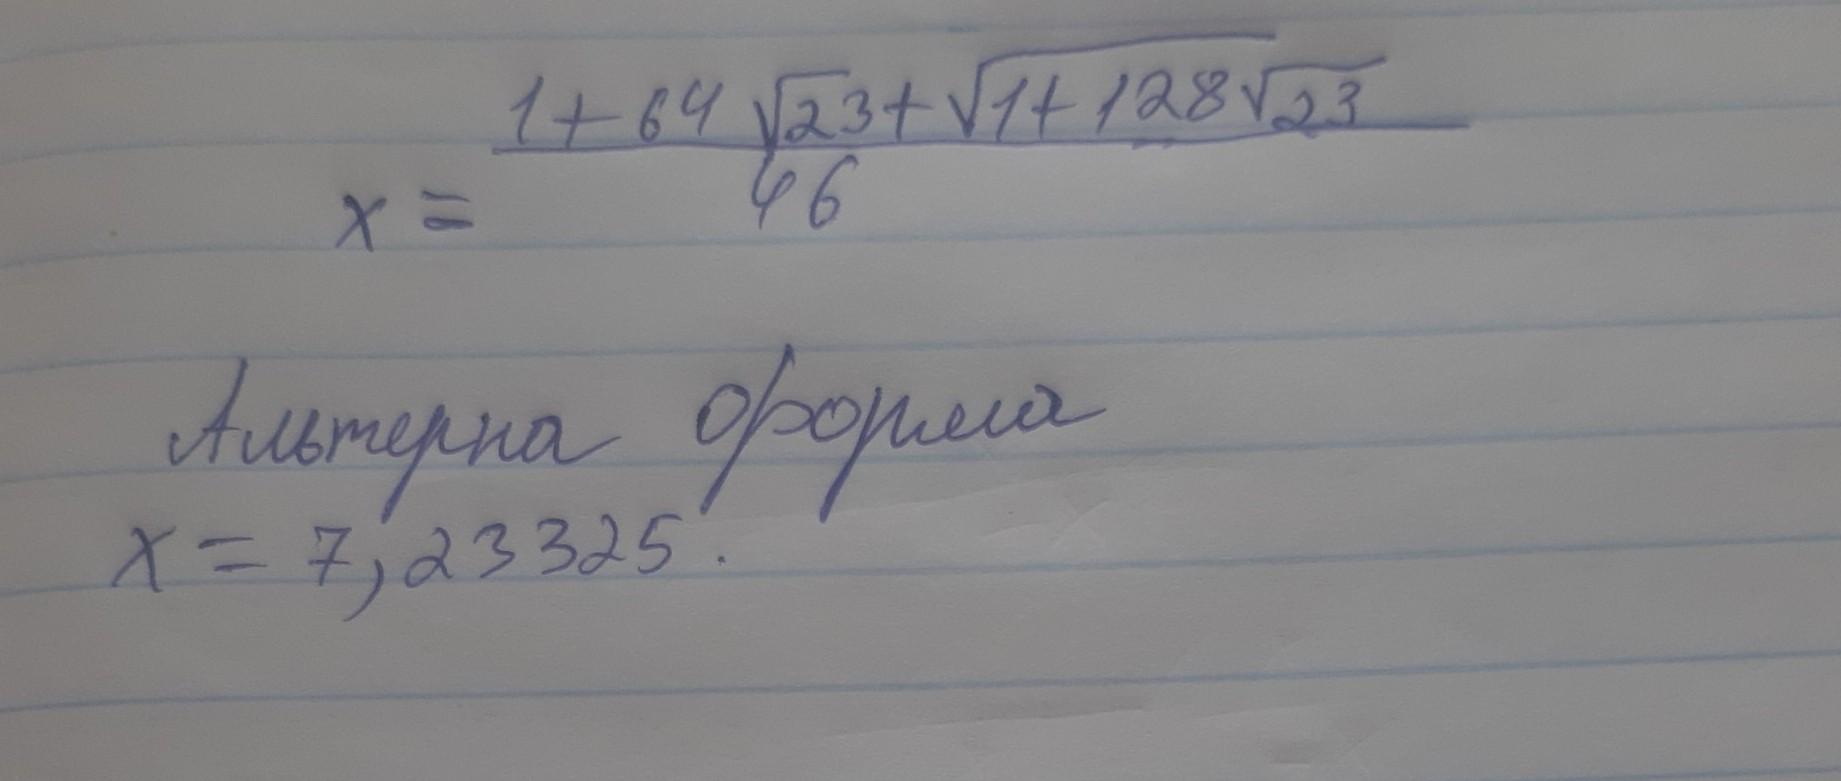 x = \frac{1+64\sqrt{23}+\sqrt{1+128\sqrt{23}}}{46}
Альтерна форма
x = 7,23325.